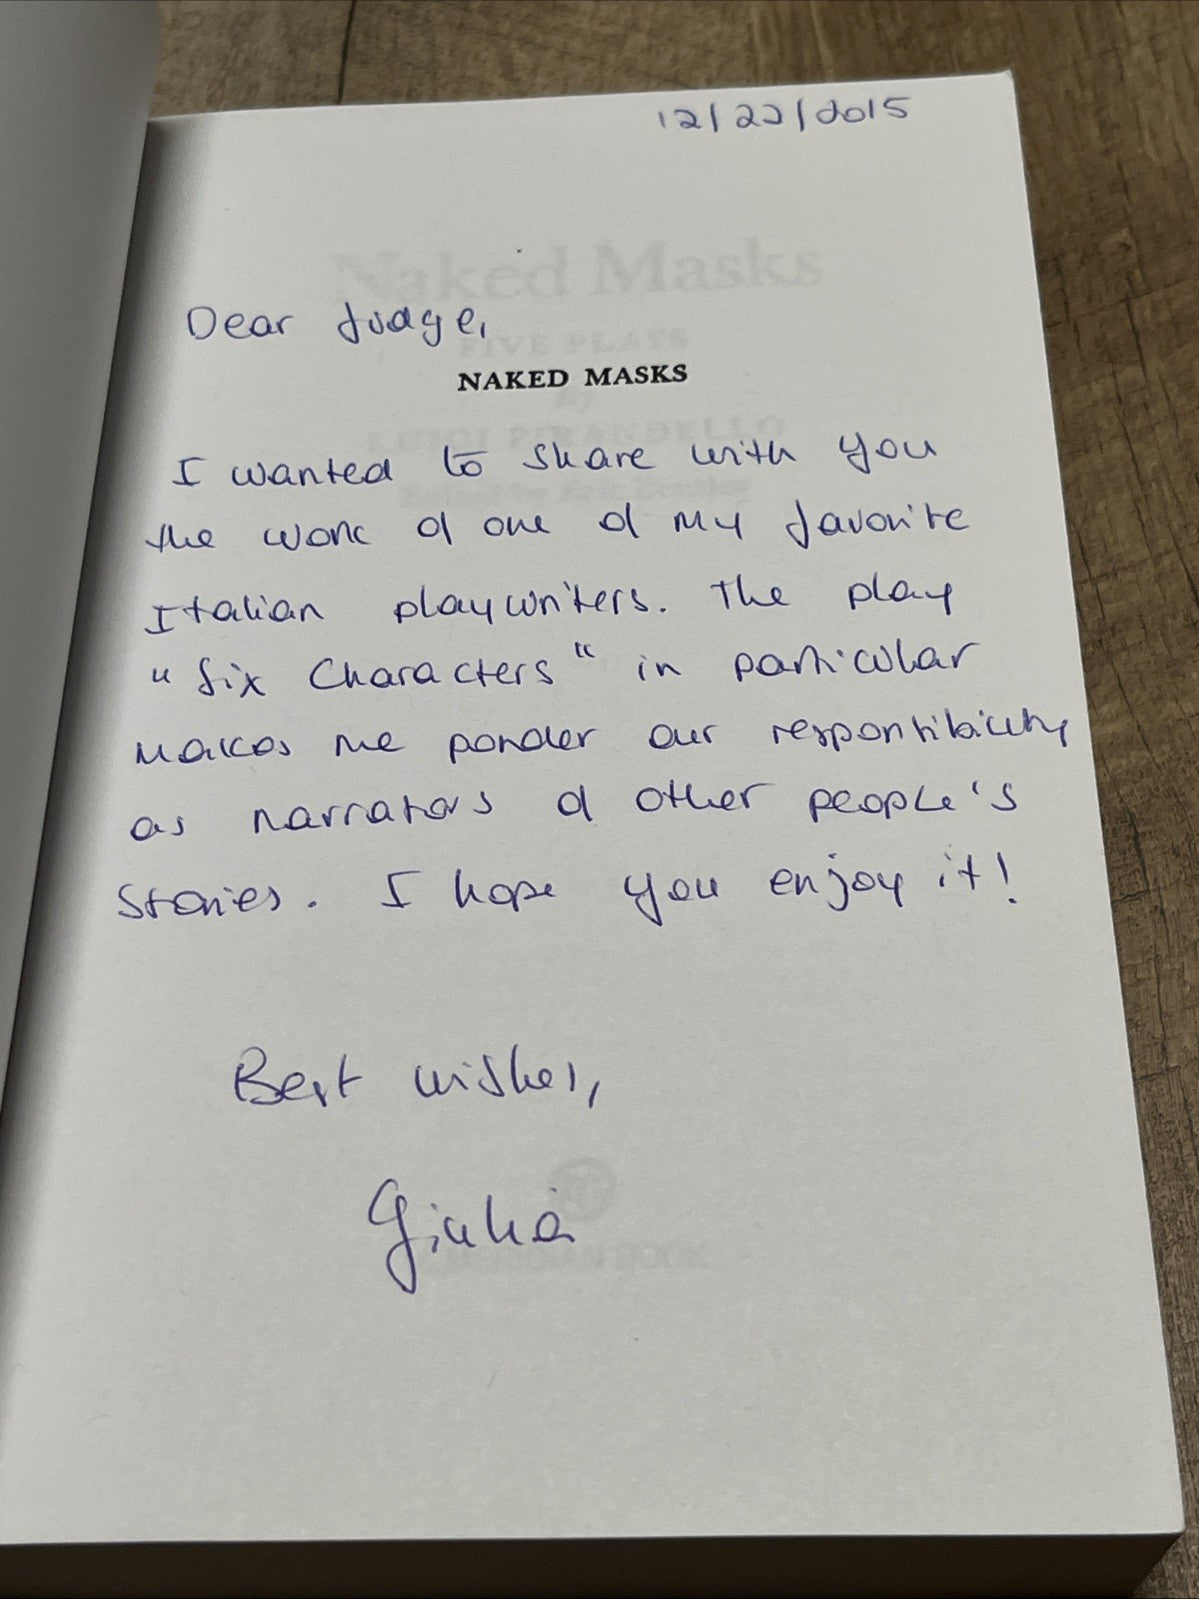 12/22/2015
Naked Masks
Dear Judge,
FIVE PLAYS
NAKED MASKS
By
LUIGI PIRANDELLO
I wanted to share with you
the work of one of my favorite
Italian playwriters. The play
"Six Characters" in particular
makes me ponder our responsibility
as narrators of other people's
stories. I hope you enjoy it!
Best wishes,
Giulia